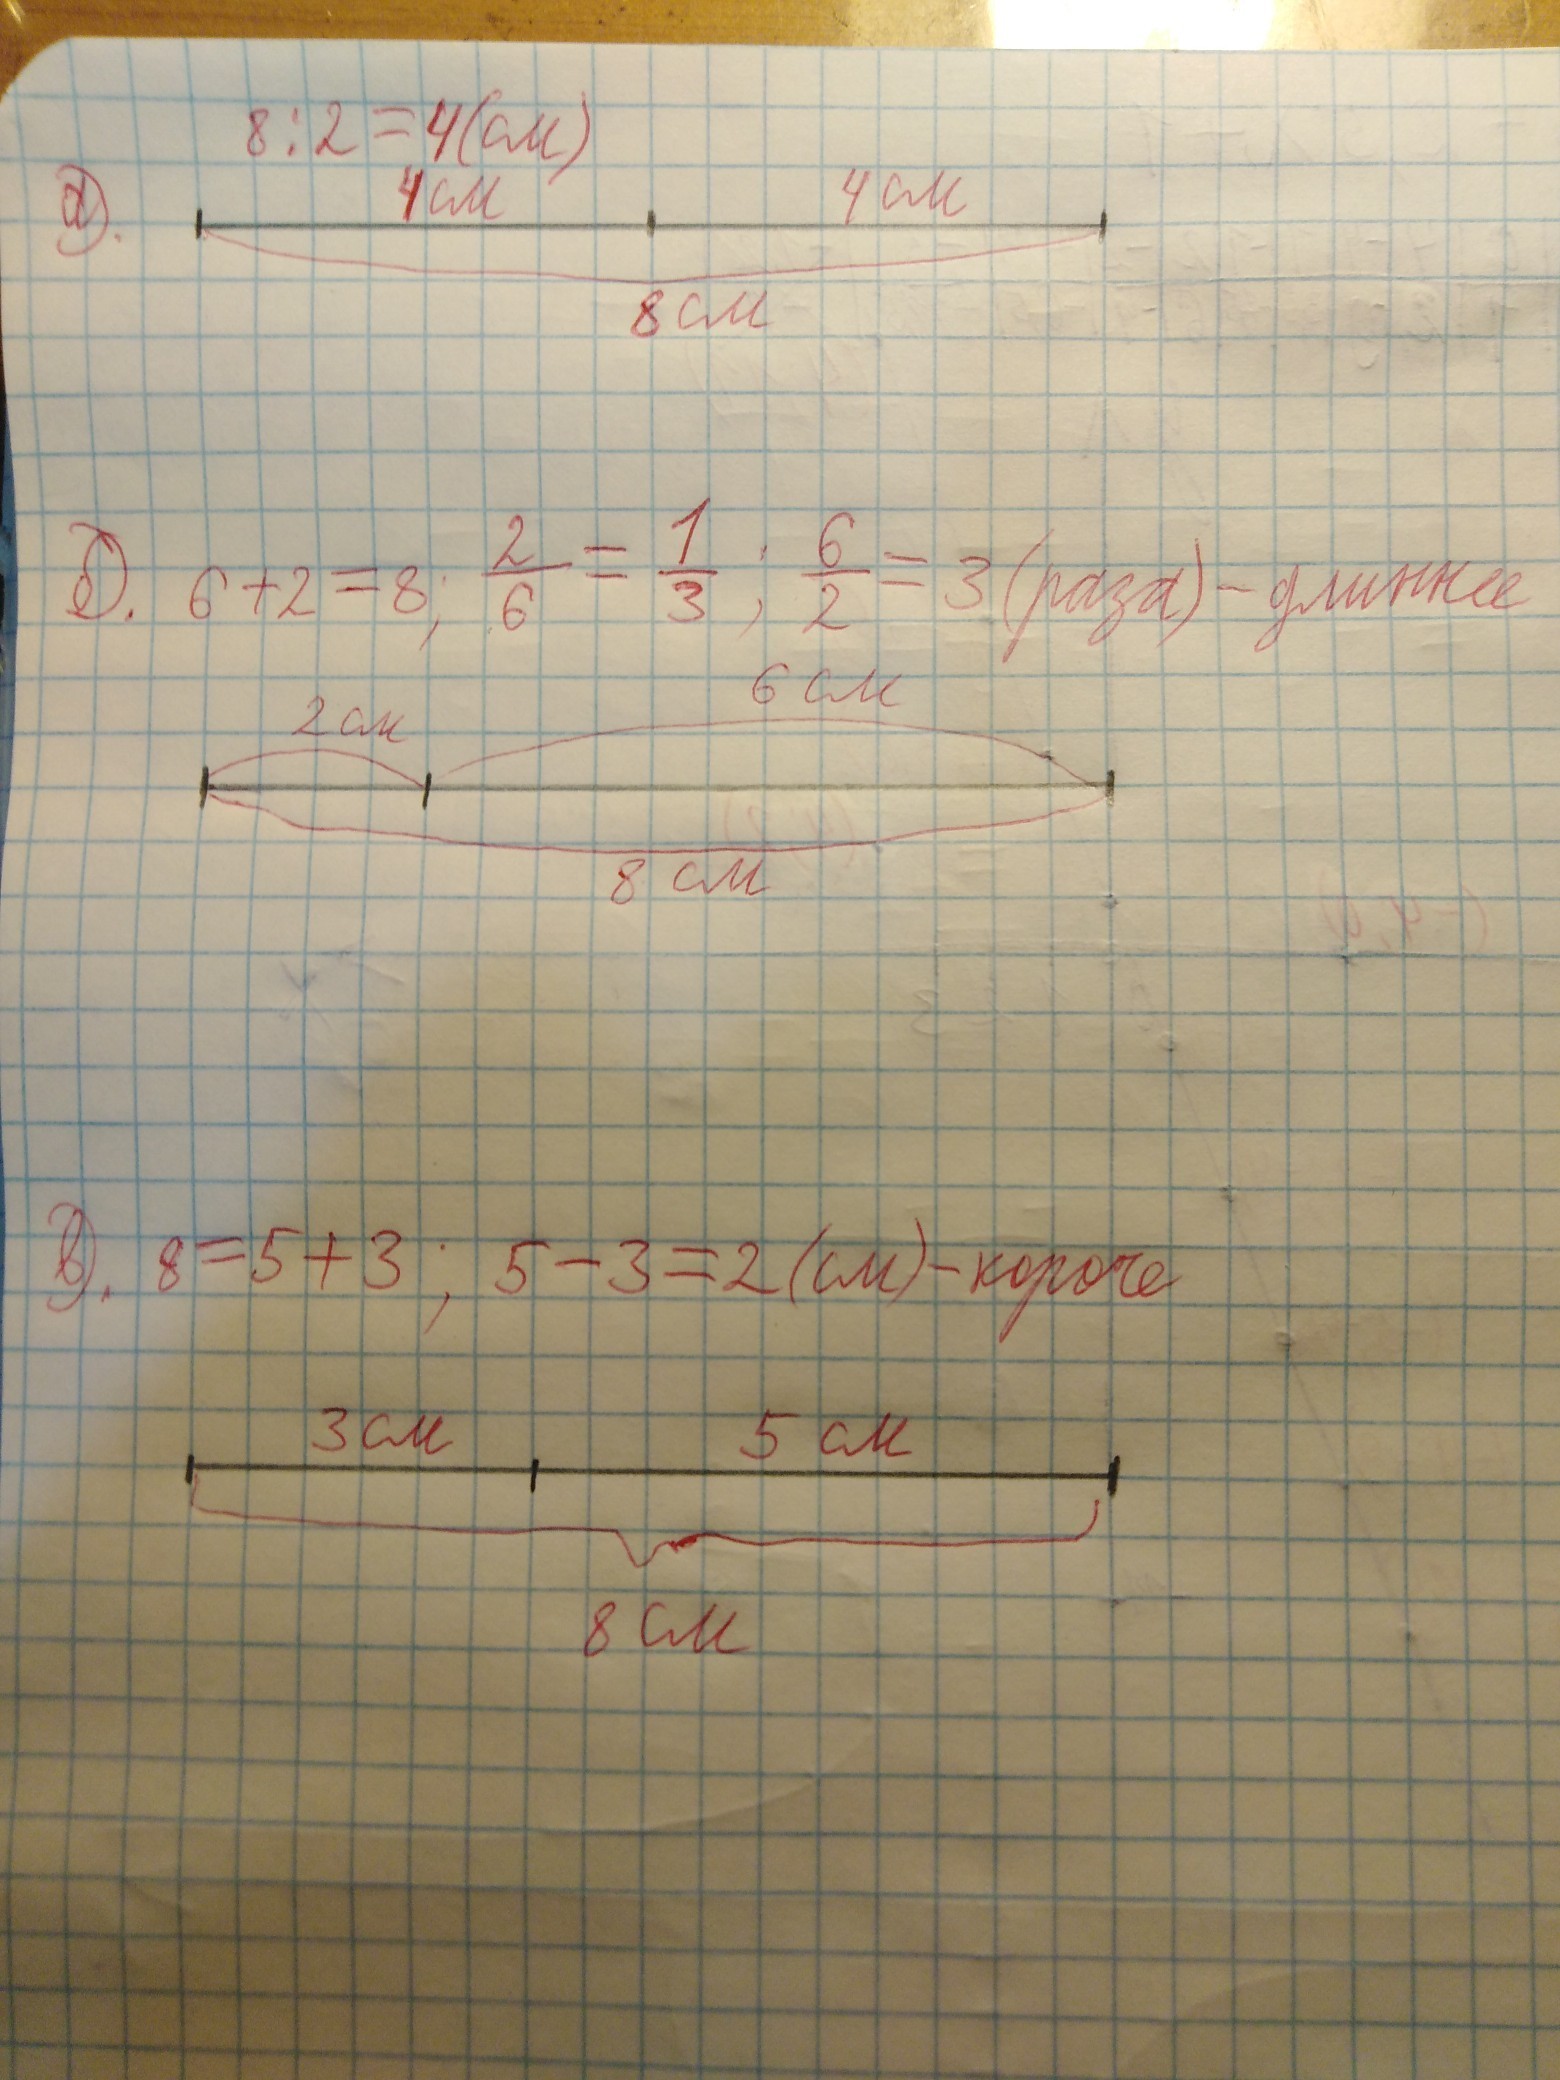 8:2=4(см)
а). 4см 4см
8см
б). 6+2=8; 2/6=1/3; 6/2=3(раза)-длиннее
2см 6см
8см
в). 8=5+3; 5-3=2(см)-короче
3см 5см
8см